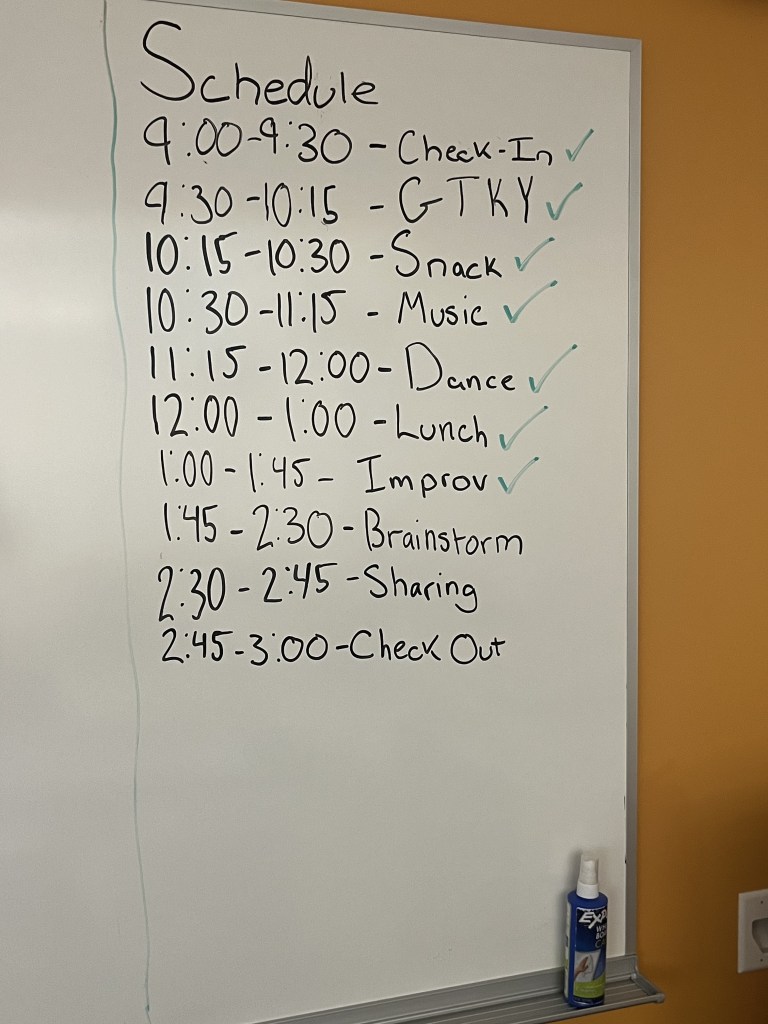 Schedule
9:00-9:30 - Check-In ✓
9:30-10:15 - GTKY ✓
10:15-10:30 - Snack ✓
10:30-11:15 - Music ✓
11:15-12:00- Dance ✓
12:00-1:00 - Lunch ✓
1:00-1:45- Improv ✓
1:45-2:30-Brainstorm
2:30-2:45-Sharing
2:45-3:00-Check Out